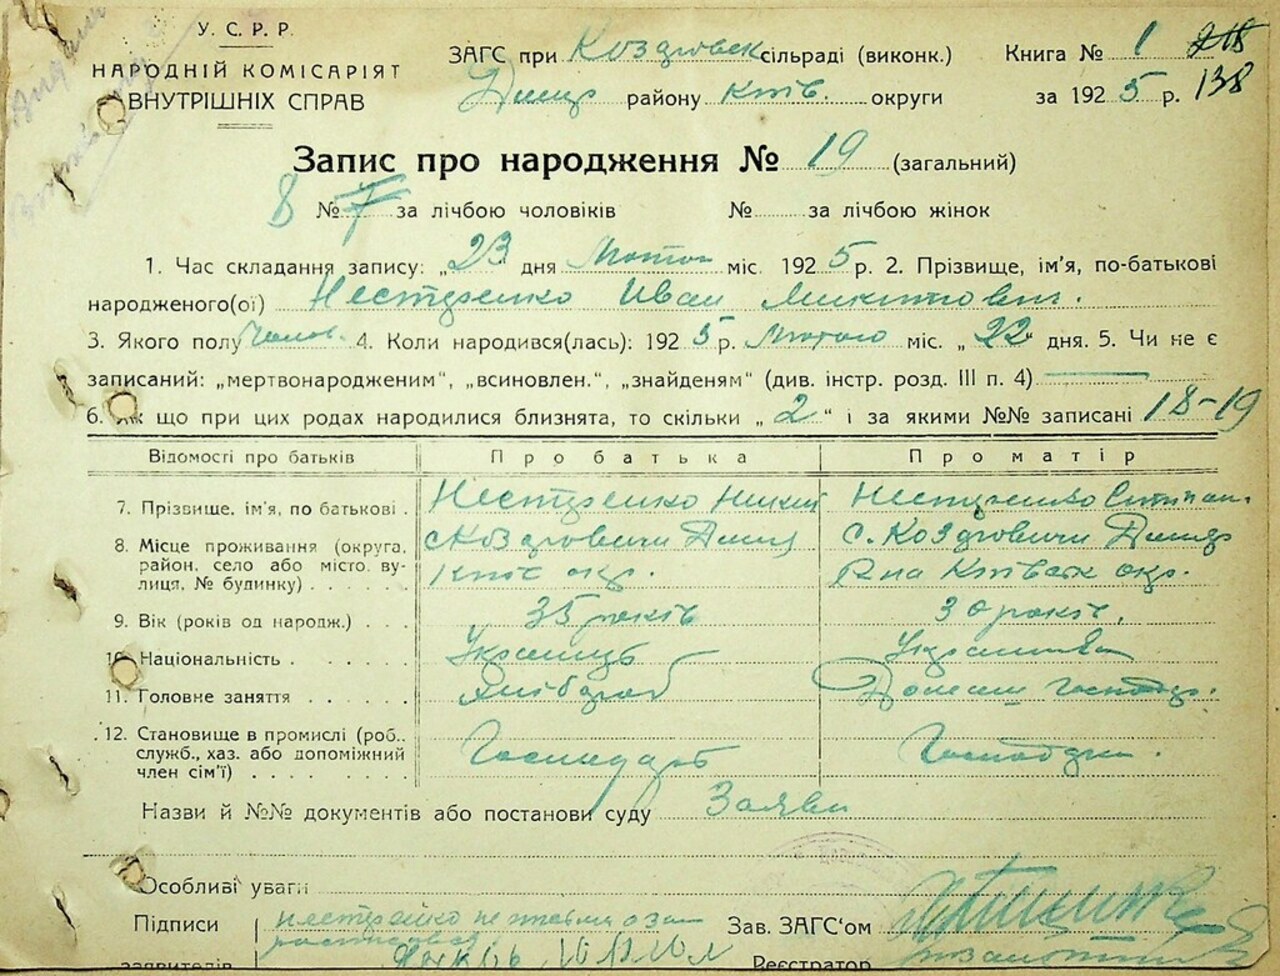 У. С. Р. Р.
НАРОДНІЙ КОМІСАРІЯТ
ВНУТРІШНІХ СПРАВ
ЗАГС при сільраді (виконк.) Книга № 1
Димер району Київ. округи за 1925 р. 138
Запис про народження № 19 (загальний)
8 № 7 за лічбою чоловіків № за лічбою жінок
1. Час складання запису: „23 дня Лютого міс. 1925 р. 2. Прізвище, ім'я, по-батькові
народженого(ої) Нестеренко Иван Микитович.
3. Якого полу Чолов. 4. Коли народився(лась): 1925 р. Лютого міс. „22 дня. 5. Чи не є
записаний: „мертвонародженим“, „всиновлен.“, „знайденям“ (див. інстр. розд. III п. 4)
6. Як що при цих родах народилися близнята, то скільки „2“ і за якими №№ записані 18-19
Відомості про батьків Про батька Про матір
7. Прізвище, ім'я, по батькові. Нестеренко Нестеренко
8. Місце проживання (округа, с. Димер
район, село або місто, ву- Київ окр. р-на окр.
лиця, № будинку)
9. Вік (років од народж.) 35 років 30 років.
10. Національність Українець Українка
11. Головне заняття Хлібороб Домашн. господар.
12. Становище в промислі (роб.,
служб., хаз. або допоміжний Господарь
член сім'ї)
Назви й №№ документів або постанови суду Заяви
Особливі уваги
Підписи Нестеренко
заявителів
Зав. ЗАГС'ом
Реєстратор